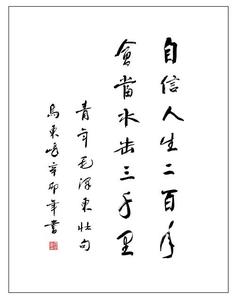 自信人生二百年
會當水击三千里
青年毛泽東壮句
烏東峰辛卯年書